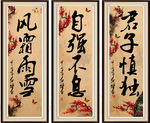 风霜雨雪
自强不息
君子慎独